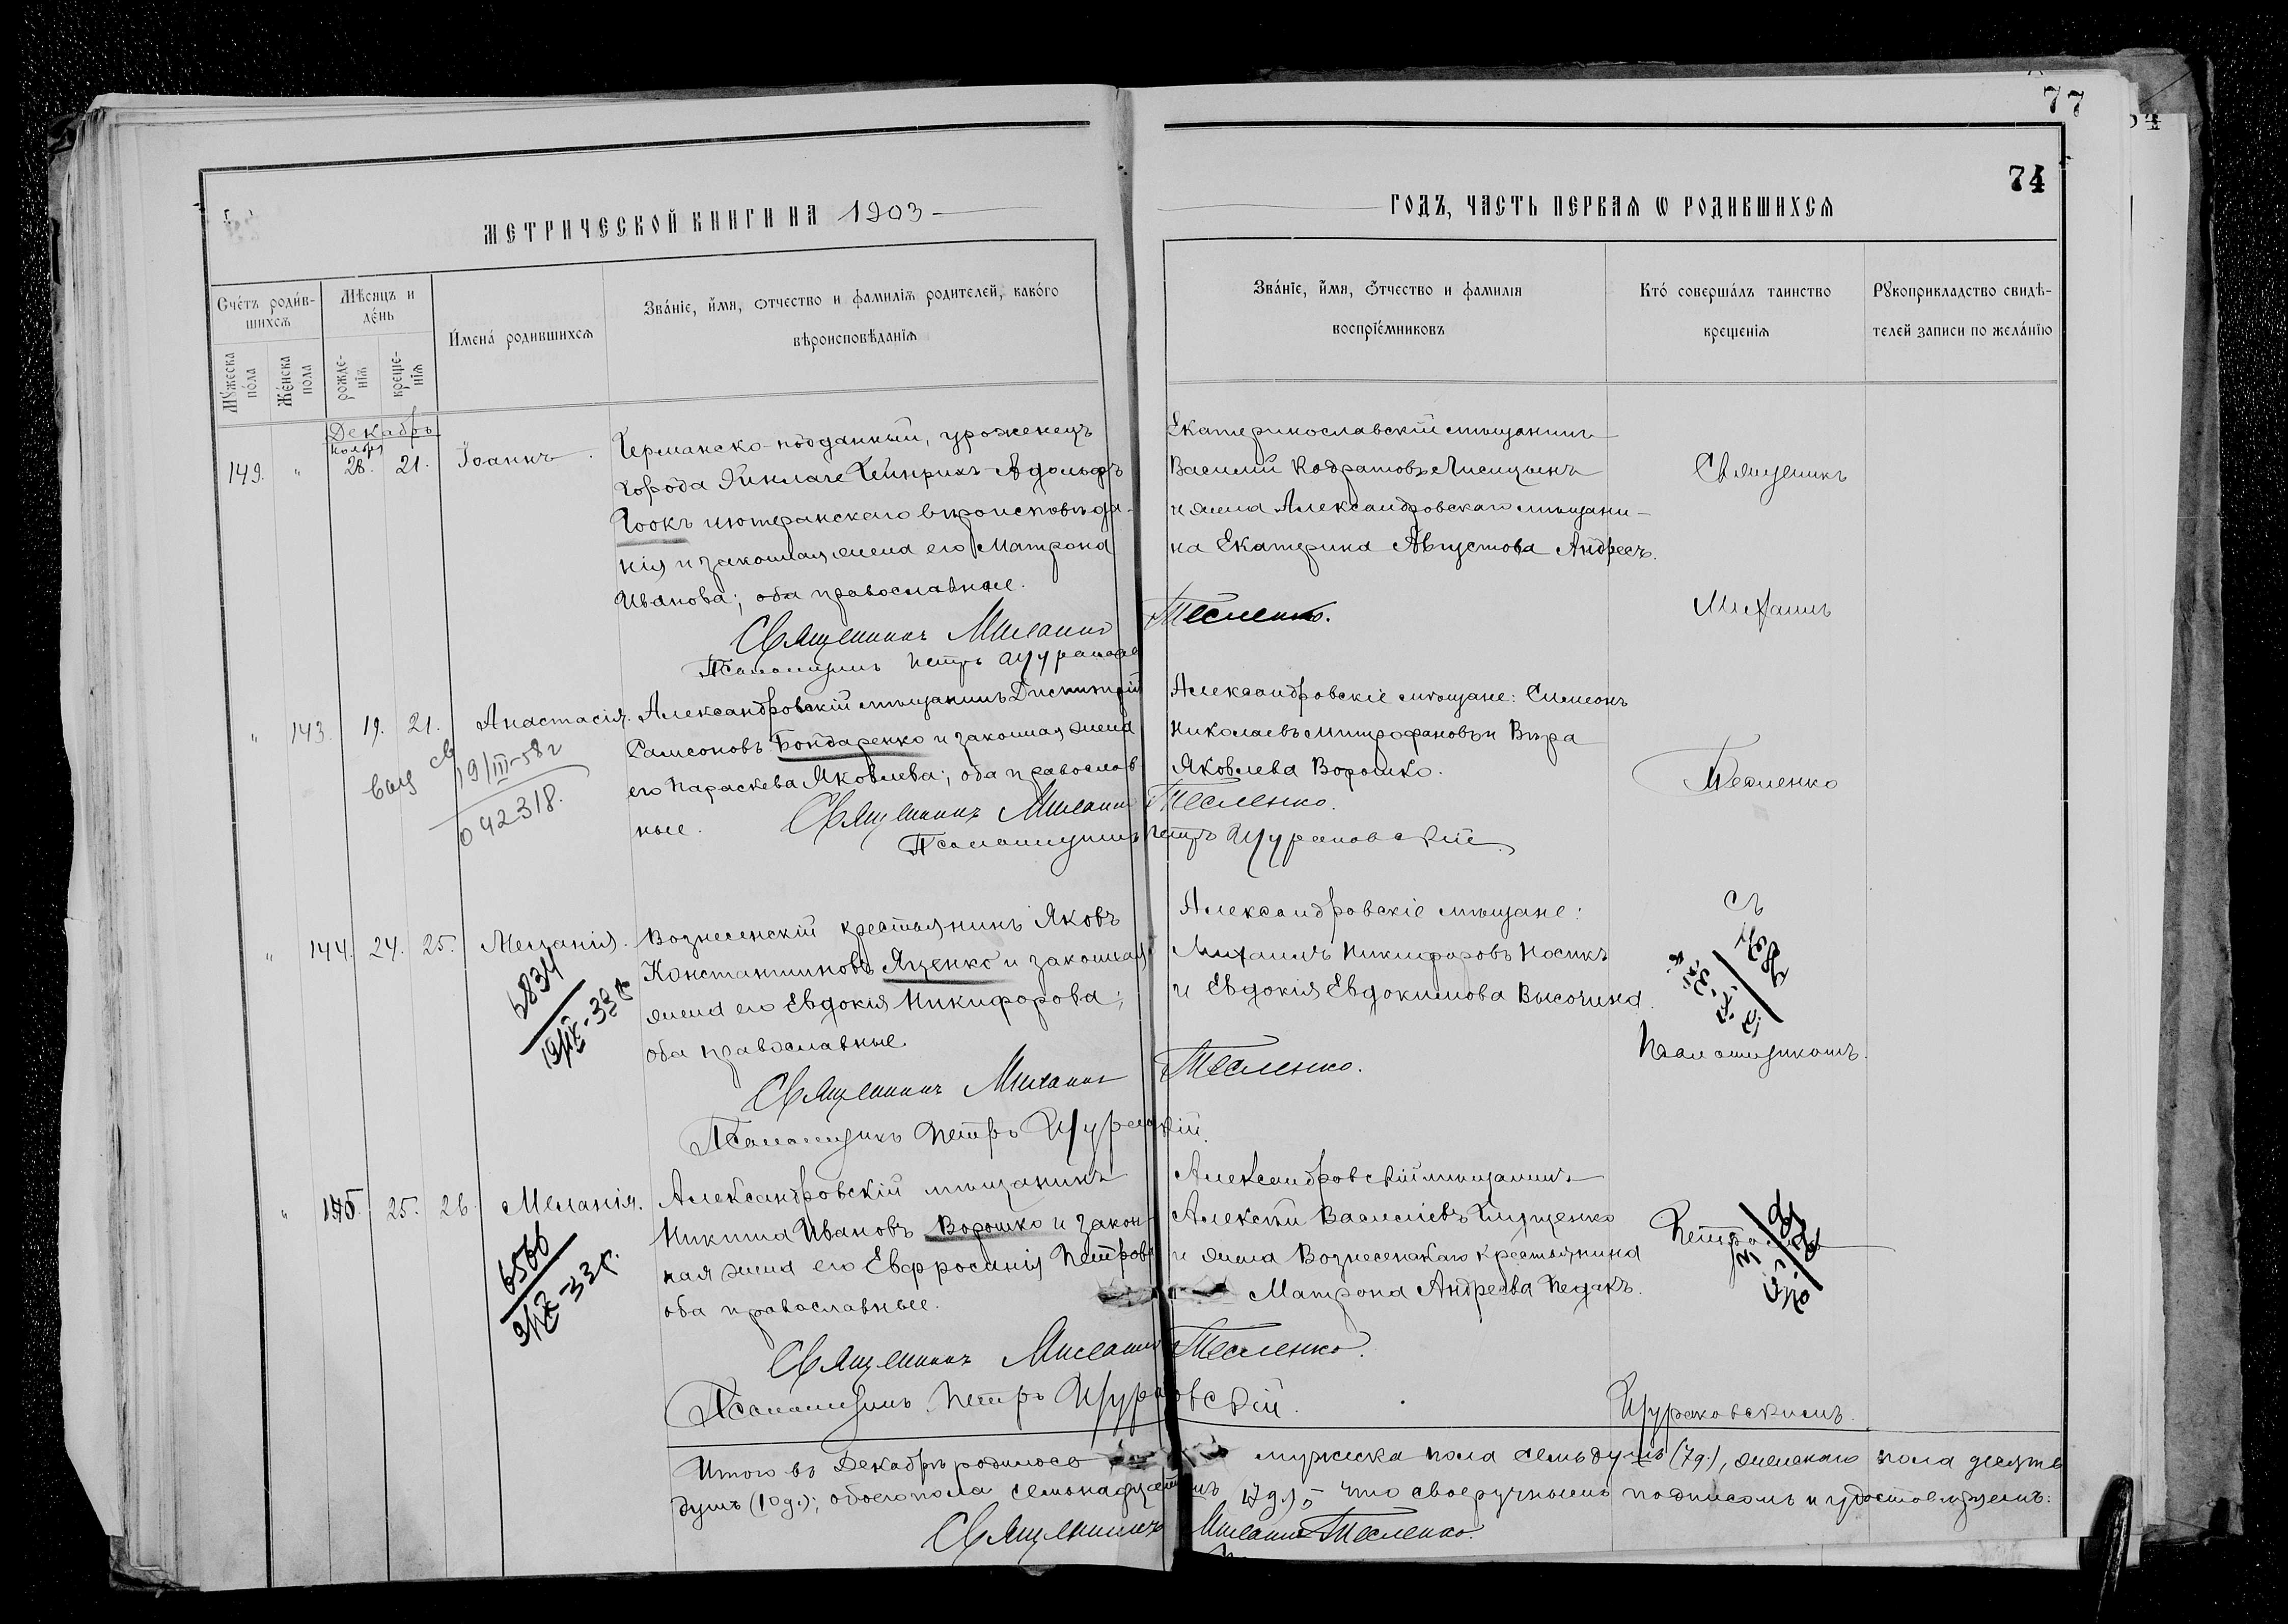 77
74
МЕТРИЧЕСКОЙ КНИГИ НА 1903
ГОДЪ, ЧАСТЬ ПЕРВАЯ Ѡ РОДИВШИХСЯ
Счетъ родив-
шихся
Мѣсяцъ и
день
Имена родившихся
Званіе, имя, отчество и фамилія родителей, какого
вѣроисповѣданія
Мужеска
пола
Женска
пола
рожде-
нія
креще-
нія
Званіе, имя, отчество и фамилія
воспріемниковъ
Кто совершалъ таинство
крещенія
Рукоприкладство свидѣ-
телей записи по желанію
Декабрь
Ноября
149. " 28. 21. Іоаннъ.
Германско-подданный, уроженецъ
города Гейнрихъ-Адольфъ
Гоокъ лютеранскаго вѣроисповѣда-
нія и законная жена его Матрона
Иванова; оба православные.
Священникъ Михаилъ Тесленко.
Псаломщикъ Петръ
Екатеринославскій мѣщанинъ
Василій Кодратовъ Лисицынъ
и жена Александровскаго мѣщани-
на Екатерина Августова Андресъ.
Священникъ
Михаилъ
" 143. 19. 21. Анастасія.
19/III-58г
042318.
Александровскій мѣщанинъ Димитрій
Самсоновъ Бондаренко и законная жена
его Параскева Яковлева; оба православ-
ные.
Священникъ Михаилъ Тесленко.
Псаломщикъ Петръ Щураковскій.
Александровскіе мѣщане: Симеонъ
Николаевъ Митрофановъ и Вѣра
Яковлева Ворошко.
Тесленко
" 144. 24. 25. Меланія.
Вознесенскій крестьянинъ Яковъ
Константиновъ Яценко и законная
жена его Евдокія Никифорова;
оба православные.
Священникъ Михаилъ Тесленко.
Псаломщикъ Петръ
Александровскіе мѣщане:
Михаилъ Никифоровъ Носикъ
и Евдокія Евдокимова Высочина.
съ
Псаломщикомъ.
" 145. 25. 26. Меланія.
6560
Александровскій мѣщанинъ
Никита Ивановъ Ворошко и закон-
ная жена его Евфросинія Петрова
оба православные.
Священникъ Михаилъ Тесленко.
Псаломщикъ Петръ Щураковскій.
Александровскій мѣщанинъ
Алексѣй Василіевъ
и жена Вознесенскаго крестьянина
Матрона Андреева Педакъ.
Петромъ
Щураковскимъ.
Итого въ Декабрѣ родилось мужеска пола семь душъ (7 д.), женскаго пола десять
душъ (10 д.); обоего пола семнадцать 17 д.), что своеручнымъ подписомъ и удостовѣряемъ:
Священникъ Михаилъ Тесленко.